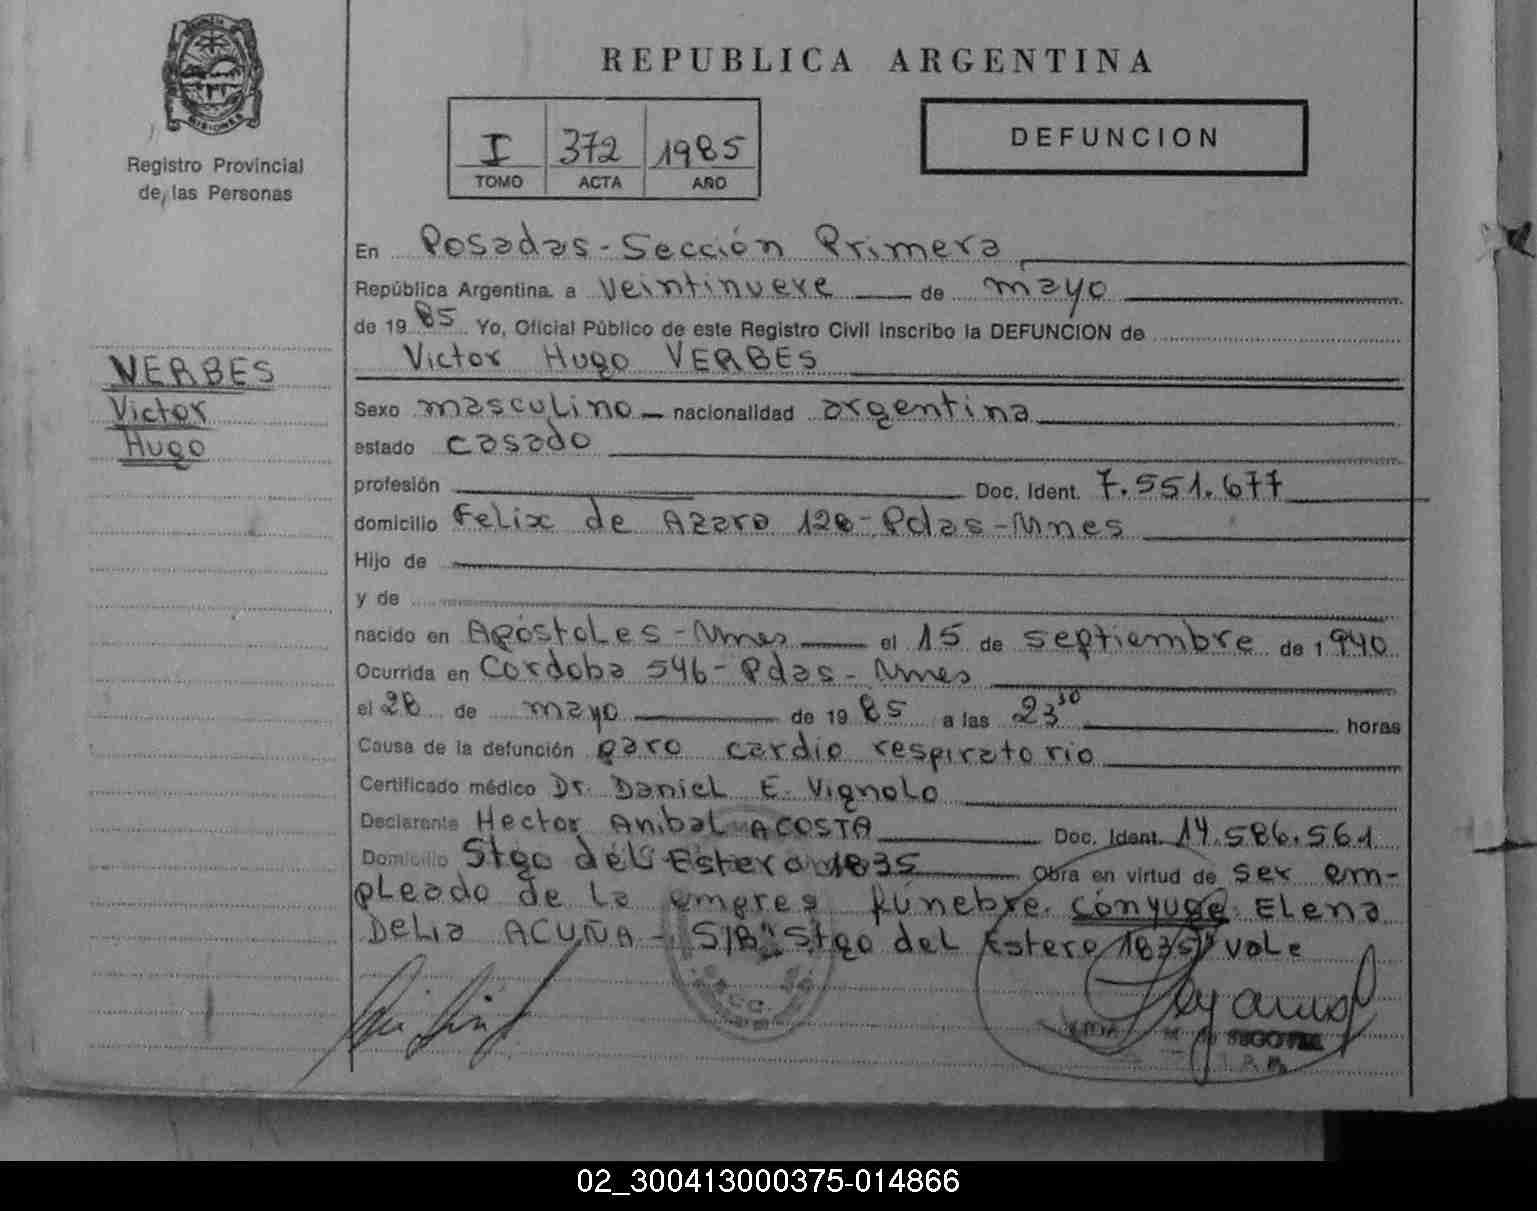 MISIONES
Registro Provincial
de las Personas
REPUBLICA ARGENTINA
I 372 1985
TOMO ACTA AÑO
DEFUNCION
En Posadas-Sección Primera
República Argentina. a veintinueve de mayo
de 19 85 Yo, Oficial Público de este Registro Civil inscribo la DEFUNCION de
Victor Hugo VERBES
VERBES
Victor
Hugo
Sexo masculino nacionalidad argentina
estado casado
profesión Doc. Ident. 7.551.677
domicilio Felix de Azara 128-Pdas-Mnes
Hijo de
y de
nacido en Apóstoles-Mnes el 15 de septiembre de 1940
Ocurrida en Cordoba 546-Pdas-Mnes
el 28 de mayo de 19 85 a las 23 30 horas
Causa de la defunción paro cardio respiratorio
Certificado médico Dr. Daniel E. Vignolo
Declarante Hector Anibal ACOSTA Doc. Ident. 14.586.561
Domicilio Stgo del Estero 1835 Obra en virtud de ser em-
pleado de la empresa fúnebre. cónyuge Elena
Delia ACUÑA - S/B "Stgo del Estero 1835" vale
02_300413000375-014866